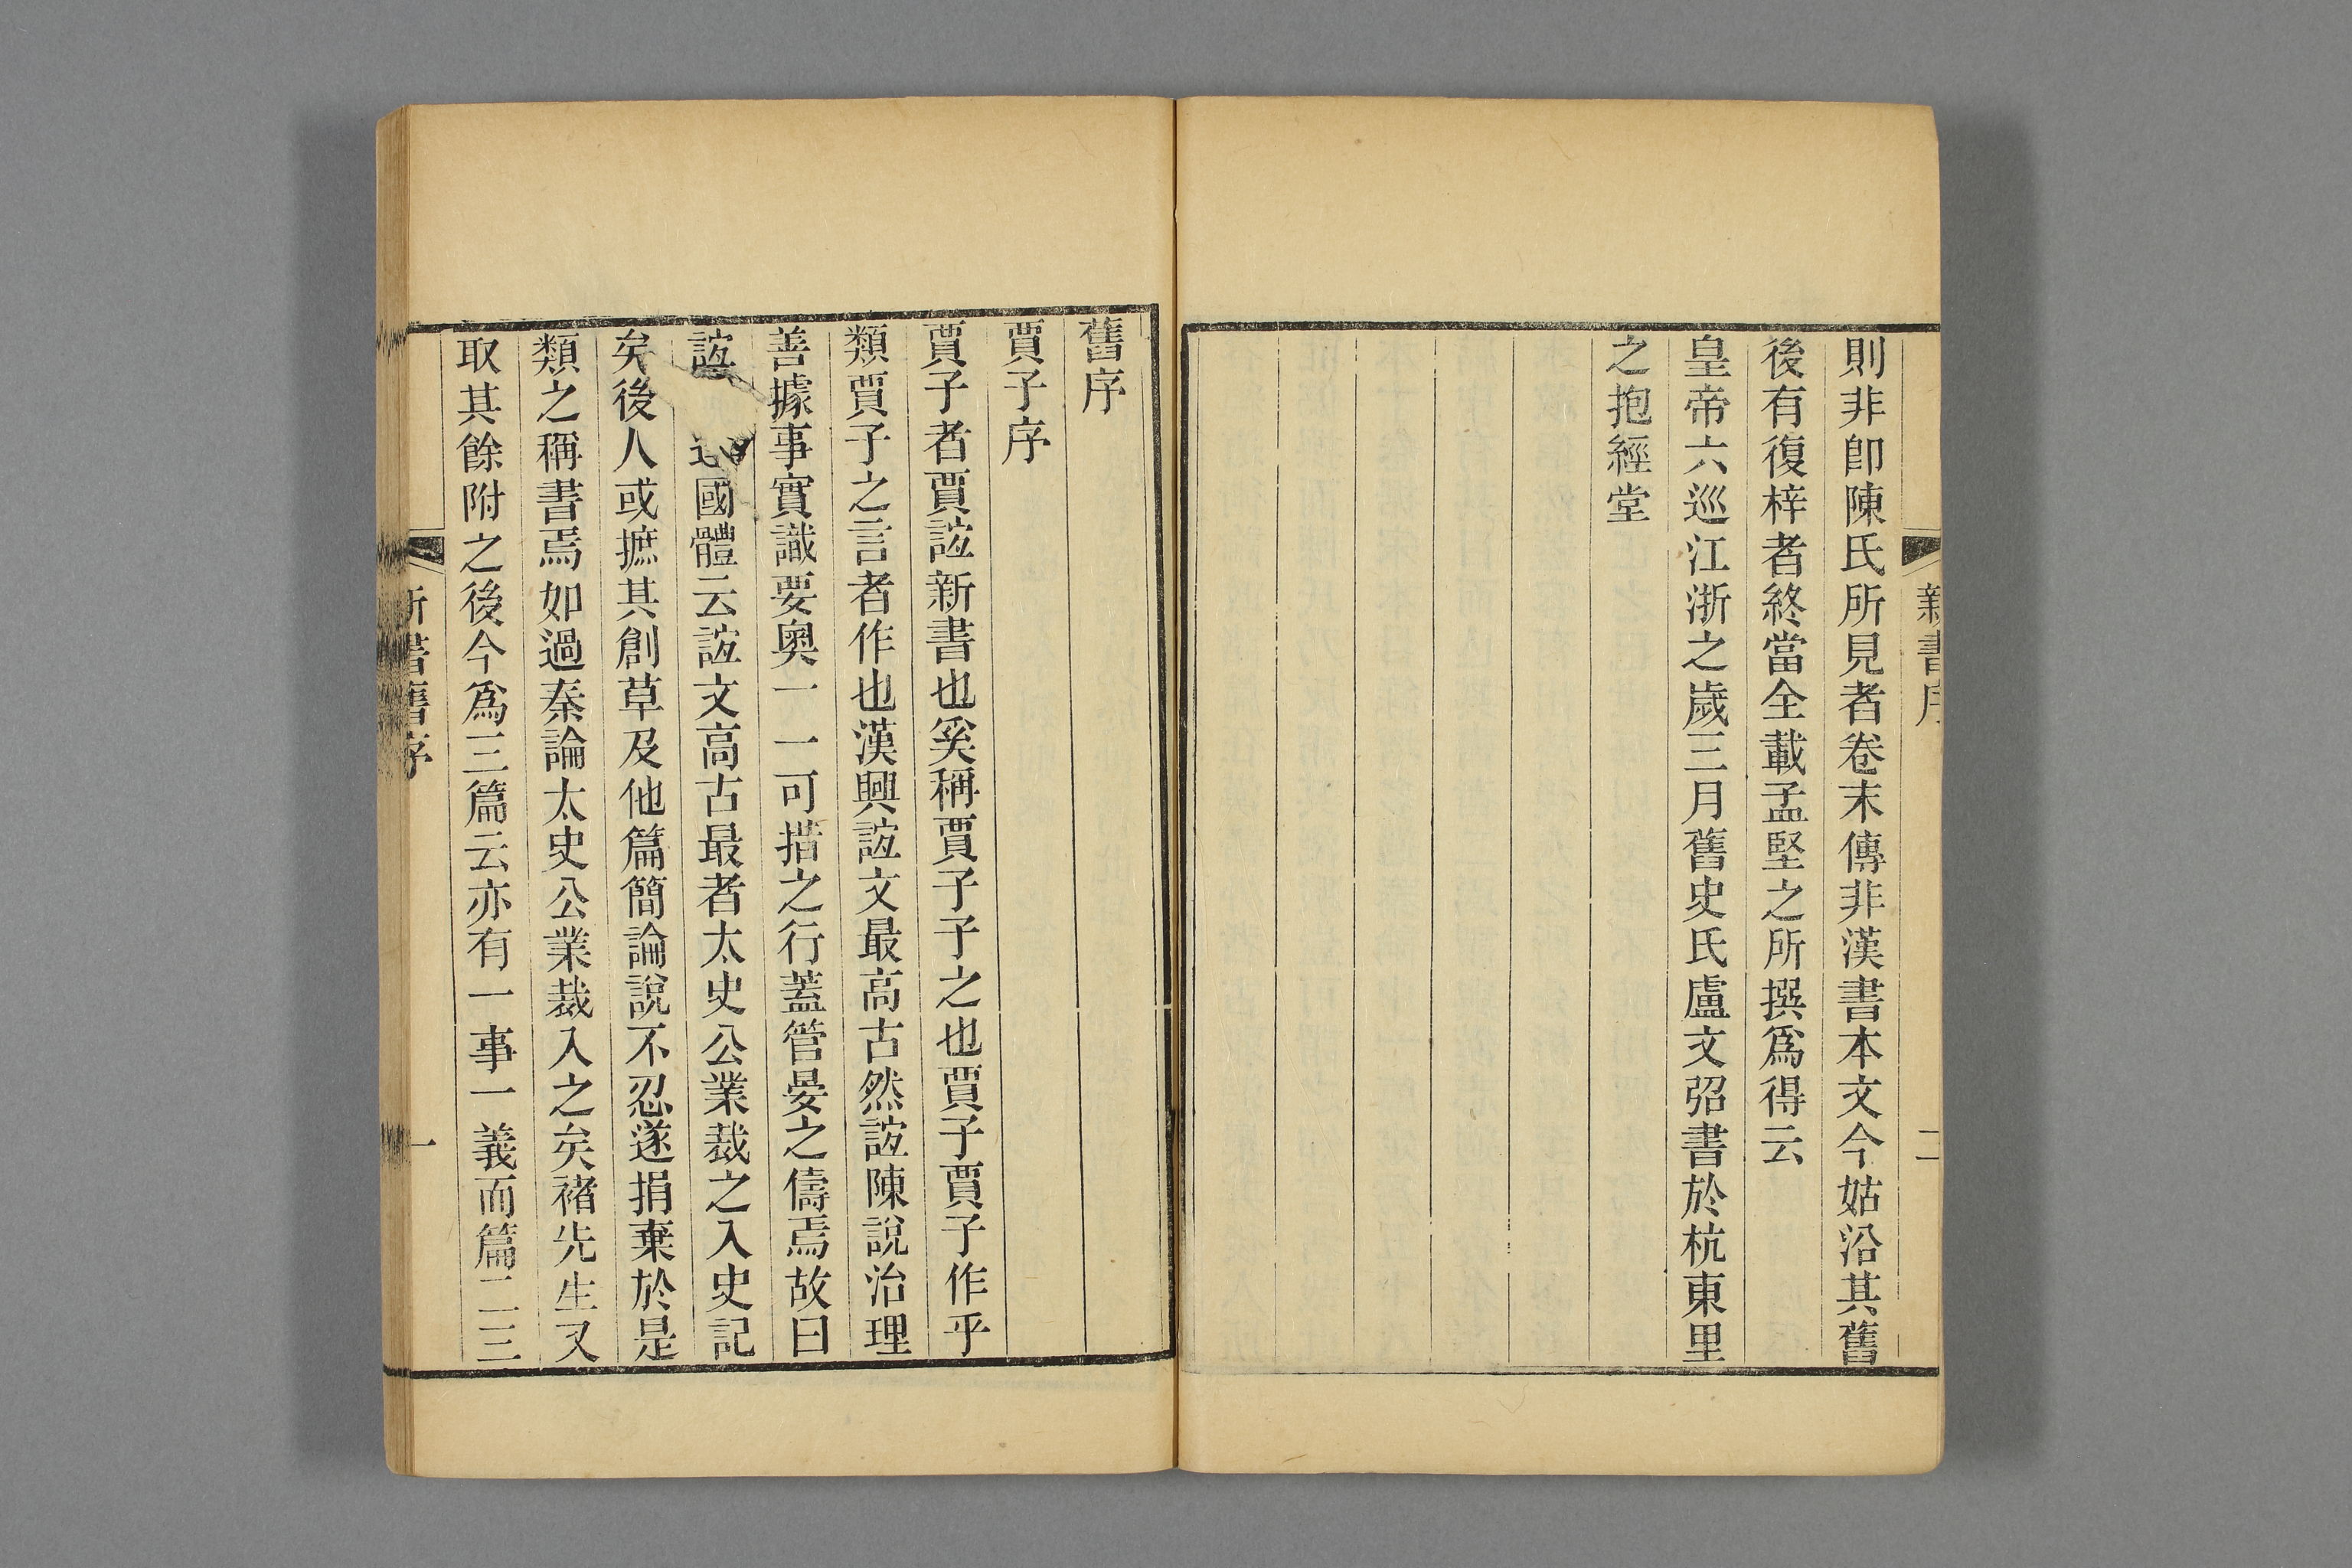 新書序
二
則非卽陳氏所見者卷末傳非漢書本文今姑沿其舊
後有復梓者終當全載孟堅之所撰爲得云
皇帝六巡江浙之歲三月舊史氏盧文弨書於杭東里
之抱經堂
舊序
賈子序
賈子者賈誼新書也奚稱賈子子之也賈子賈子作乎
類賈子之言者作也漢興誼文最高古然誼陳說治理
善據事實識要奧一一可措之行蓋管晏之儔焉故曰
誼國體云誼文高古最者太史公業裁之入史記
矣後人或摭其創草及他篇簡論說不忍遂捐棄於是
類之稱書焉如過秦論太史公業裁入之矣褚先生又
取其餘附之後今爲三篇云亦有一事一義而篇二三
新書舊序
一